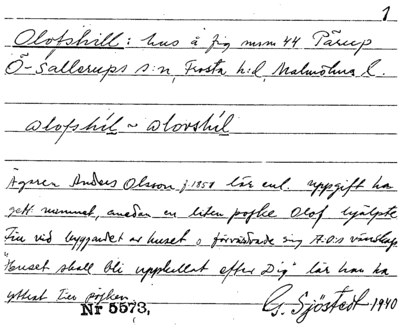 1
Olofshill: hus å fig num 44 Pärup
Ö-Sallerups s:n, Frosta h:d, Malmöhus l.
olofshíl ~ olovshíl
Ägaren Anders Olsson f. 1850 lär enl. uppgift ha
gett namnet, emedan en liten pojke Olof hjälpte
till vid byggandet av huset o förvärvade sig A.O:s vänskap.
"Huset skall bli uppkallat efter Dig" lär han ha
yttrat till pojken.
Nr 5573,
G. Sjöstedt 1940